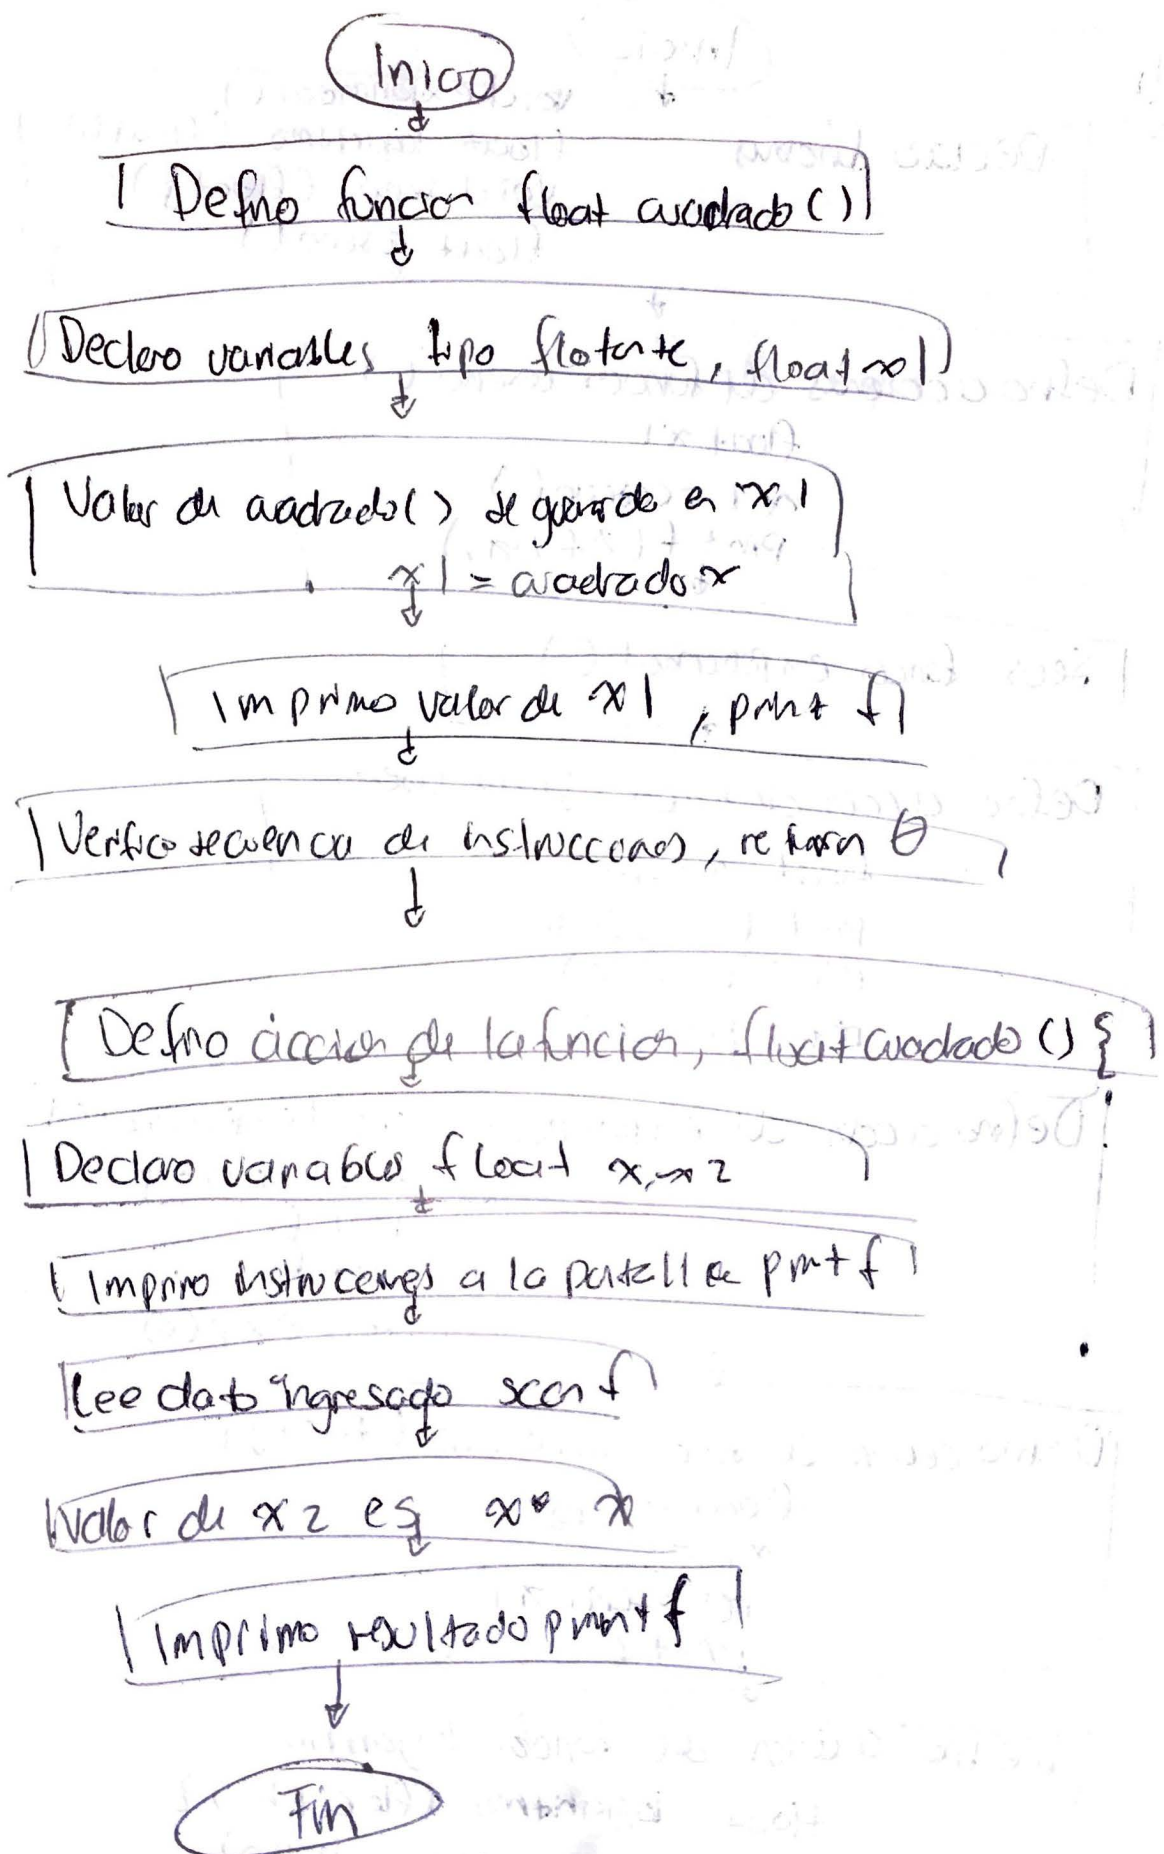 Inicio
Defino funcion float cuadrado()
Declaro variables tipo flotante, float x1
Valor de cuadrado() se guarda en x1
x1 = cuadrado x
Imprimo valor de x1, printf
Verifico secuencia de instrucciones, return 0
Defino accion de la funcion, float cuadrado () {
Declaro variables float x, x2
Imprimo instrucciones a la pantalla printf
Lee dato ingresado scanf
Valor de x2 es x* x
Imprimo resultado printf
Fin